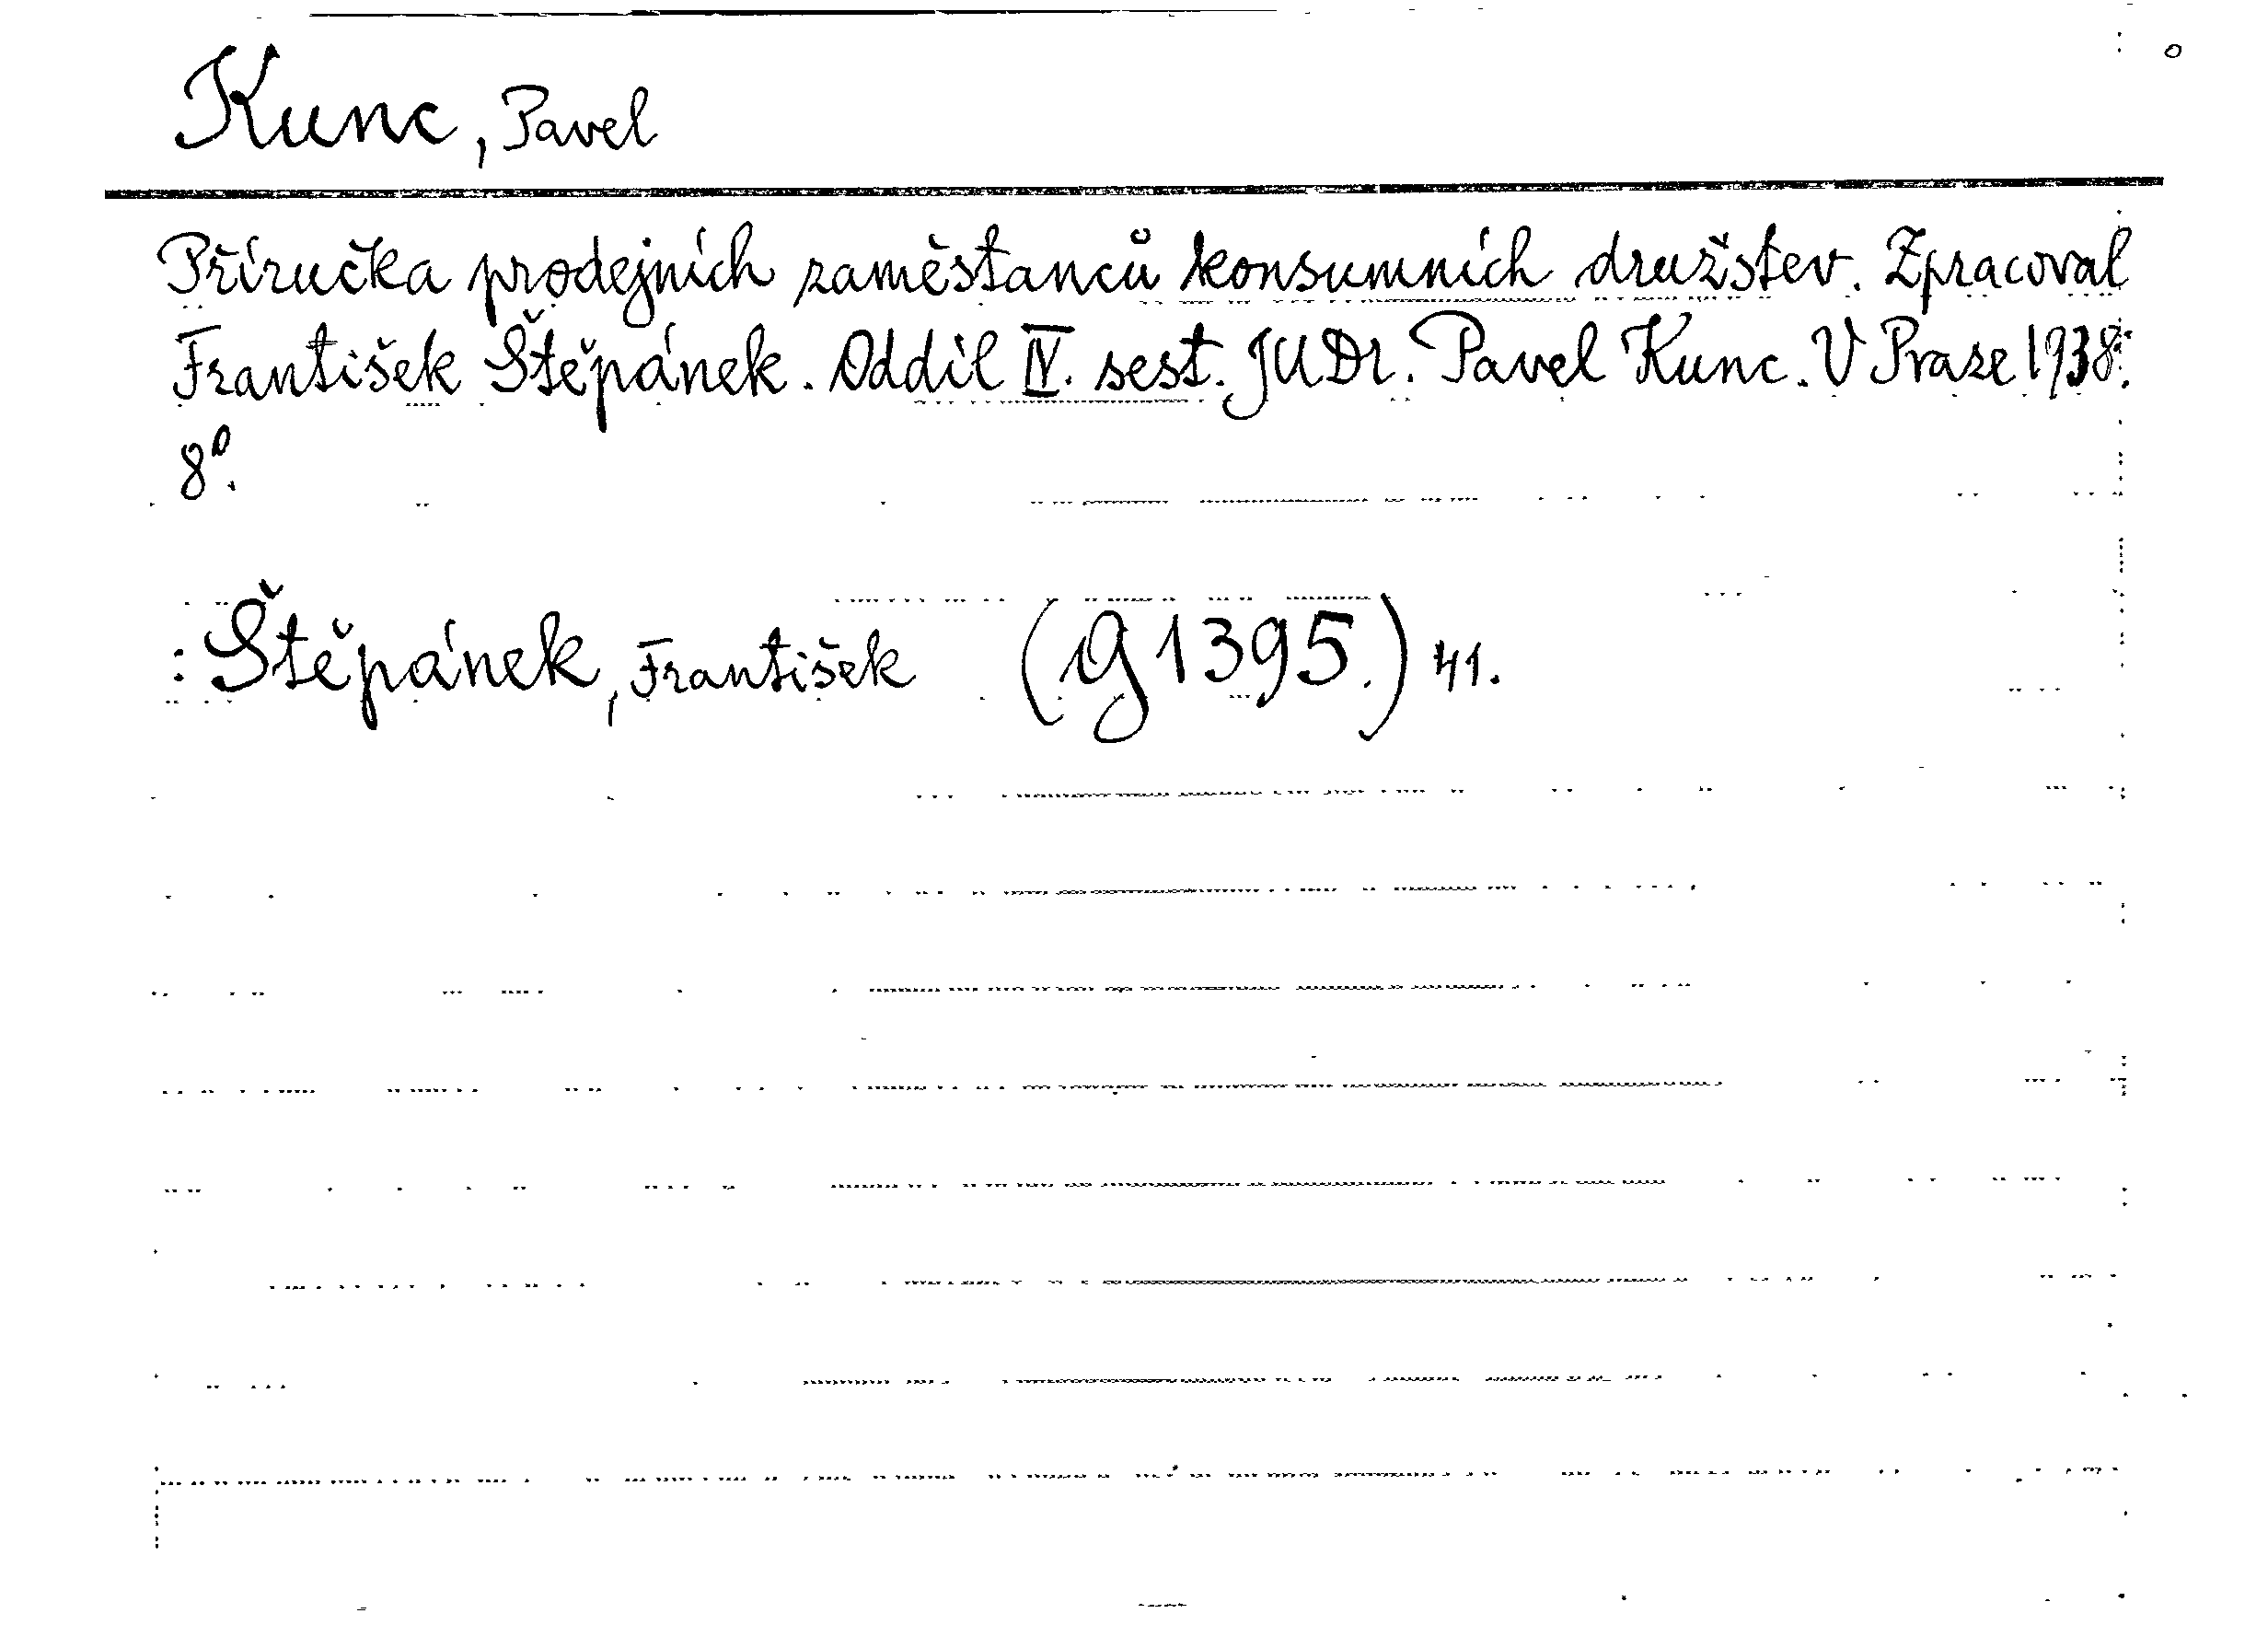 Kunc, Pavel
Příručka prodejních zaměstanců konsumních družstev. Zpracoval
František Štěpánek. Oddíl IV. sest. JUDr. Pavel Kunc. V Praze 1938.
8°.
: Štěpánek, František (g 1395.) 41.